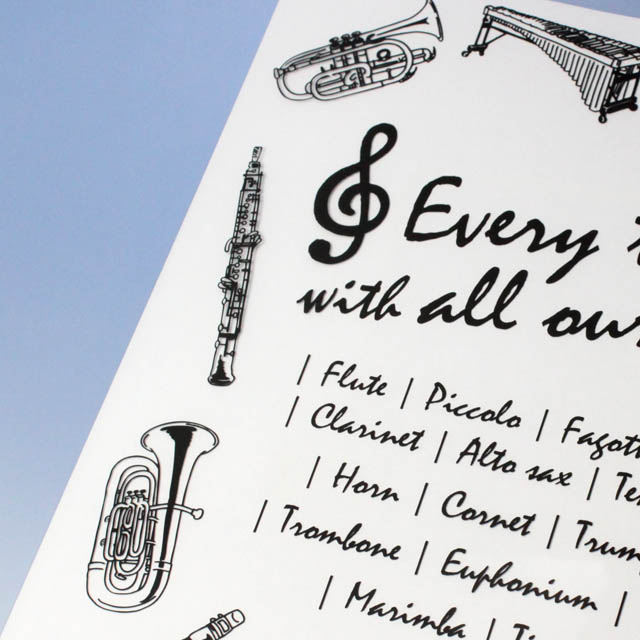 Every
with all our
| Flute | Piccolo | Fagott
| Clarinet | Alto sax |
| Horn | Cornet |
| Trombone | Euphonium |
| Marimba |